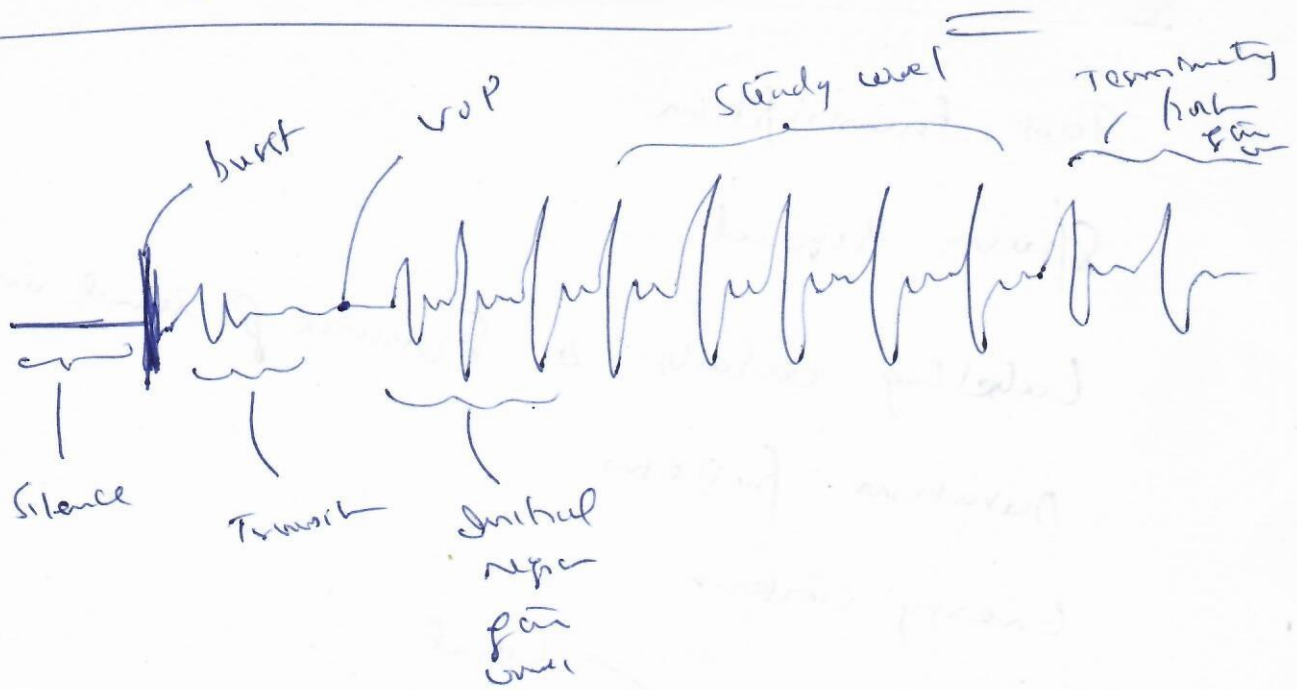 burst
VOP
Steady vowel
Terminating
part
Silence
Transition
Initial
region
of the
vowel